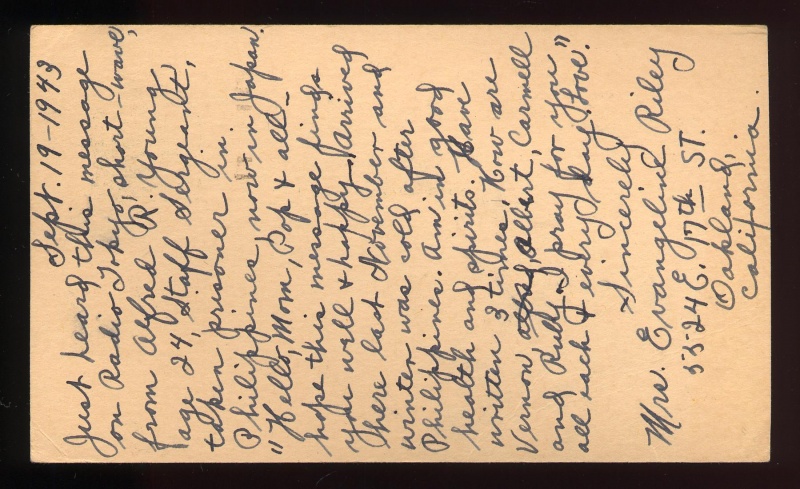 Sept. 19-1943
Just heard this message
on Radio Tokyo, short-wave,
from Alfred R. Young,
age 24, Staff Sargeant,
taken prisoner in
Philippines, now in Japan.
"Hello, Mom, Pop & all-
hope this message finds
you well & happy. Arrived
here last November and
winter was cold after
Philippines. Am in good
health and spirits. Have
written 3 times. How are
Vernon, Albert, Carmell
and Rully. I pray for you
all each & every day. Love."
Sincerely
Mrs. Evangeline Riley
5524 E. 17th ST.
Oakland,
California.